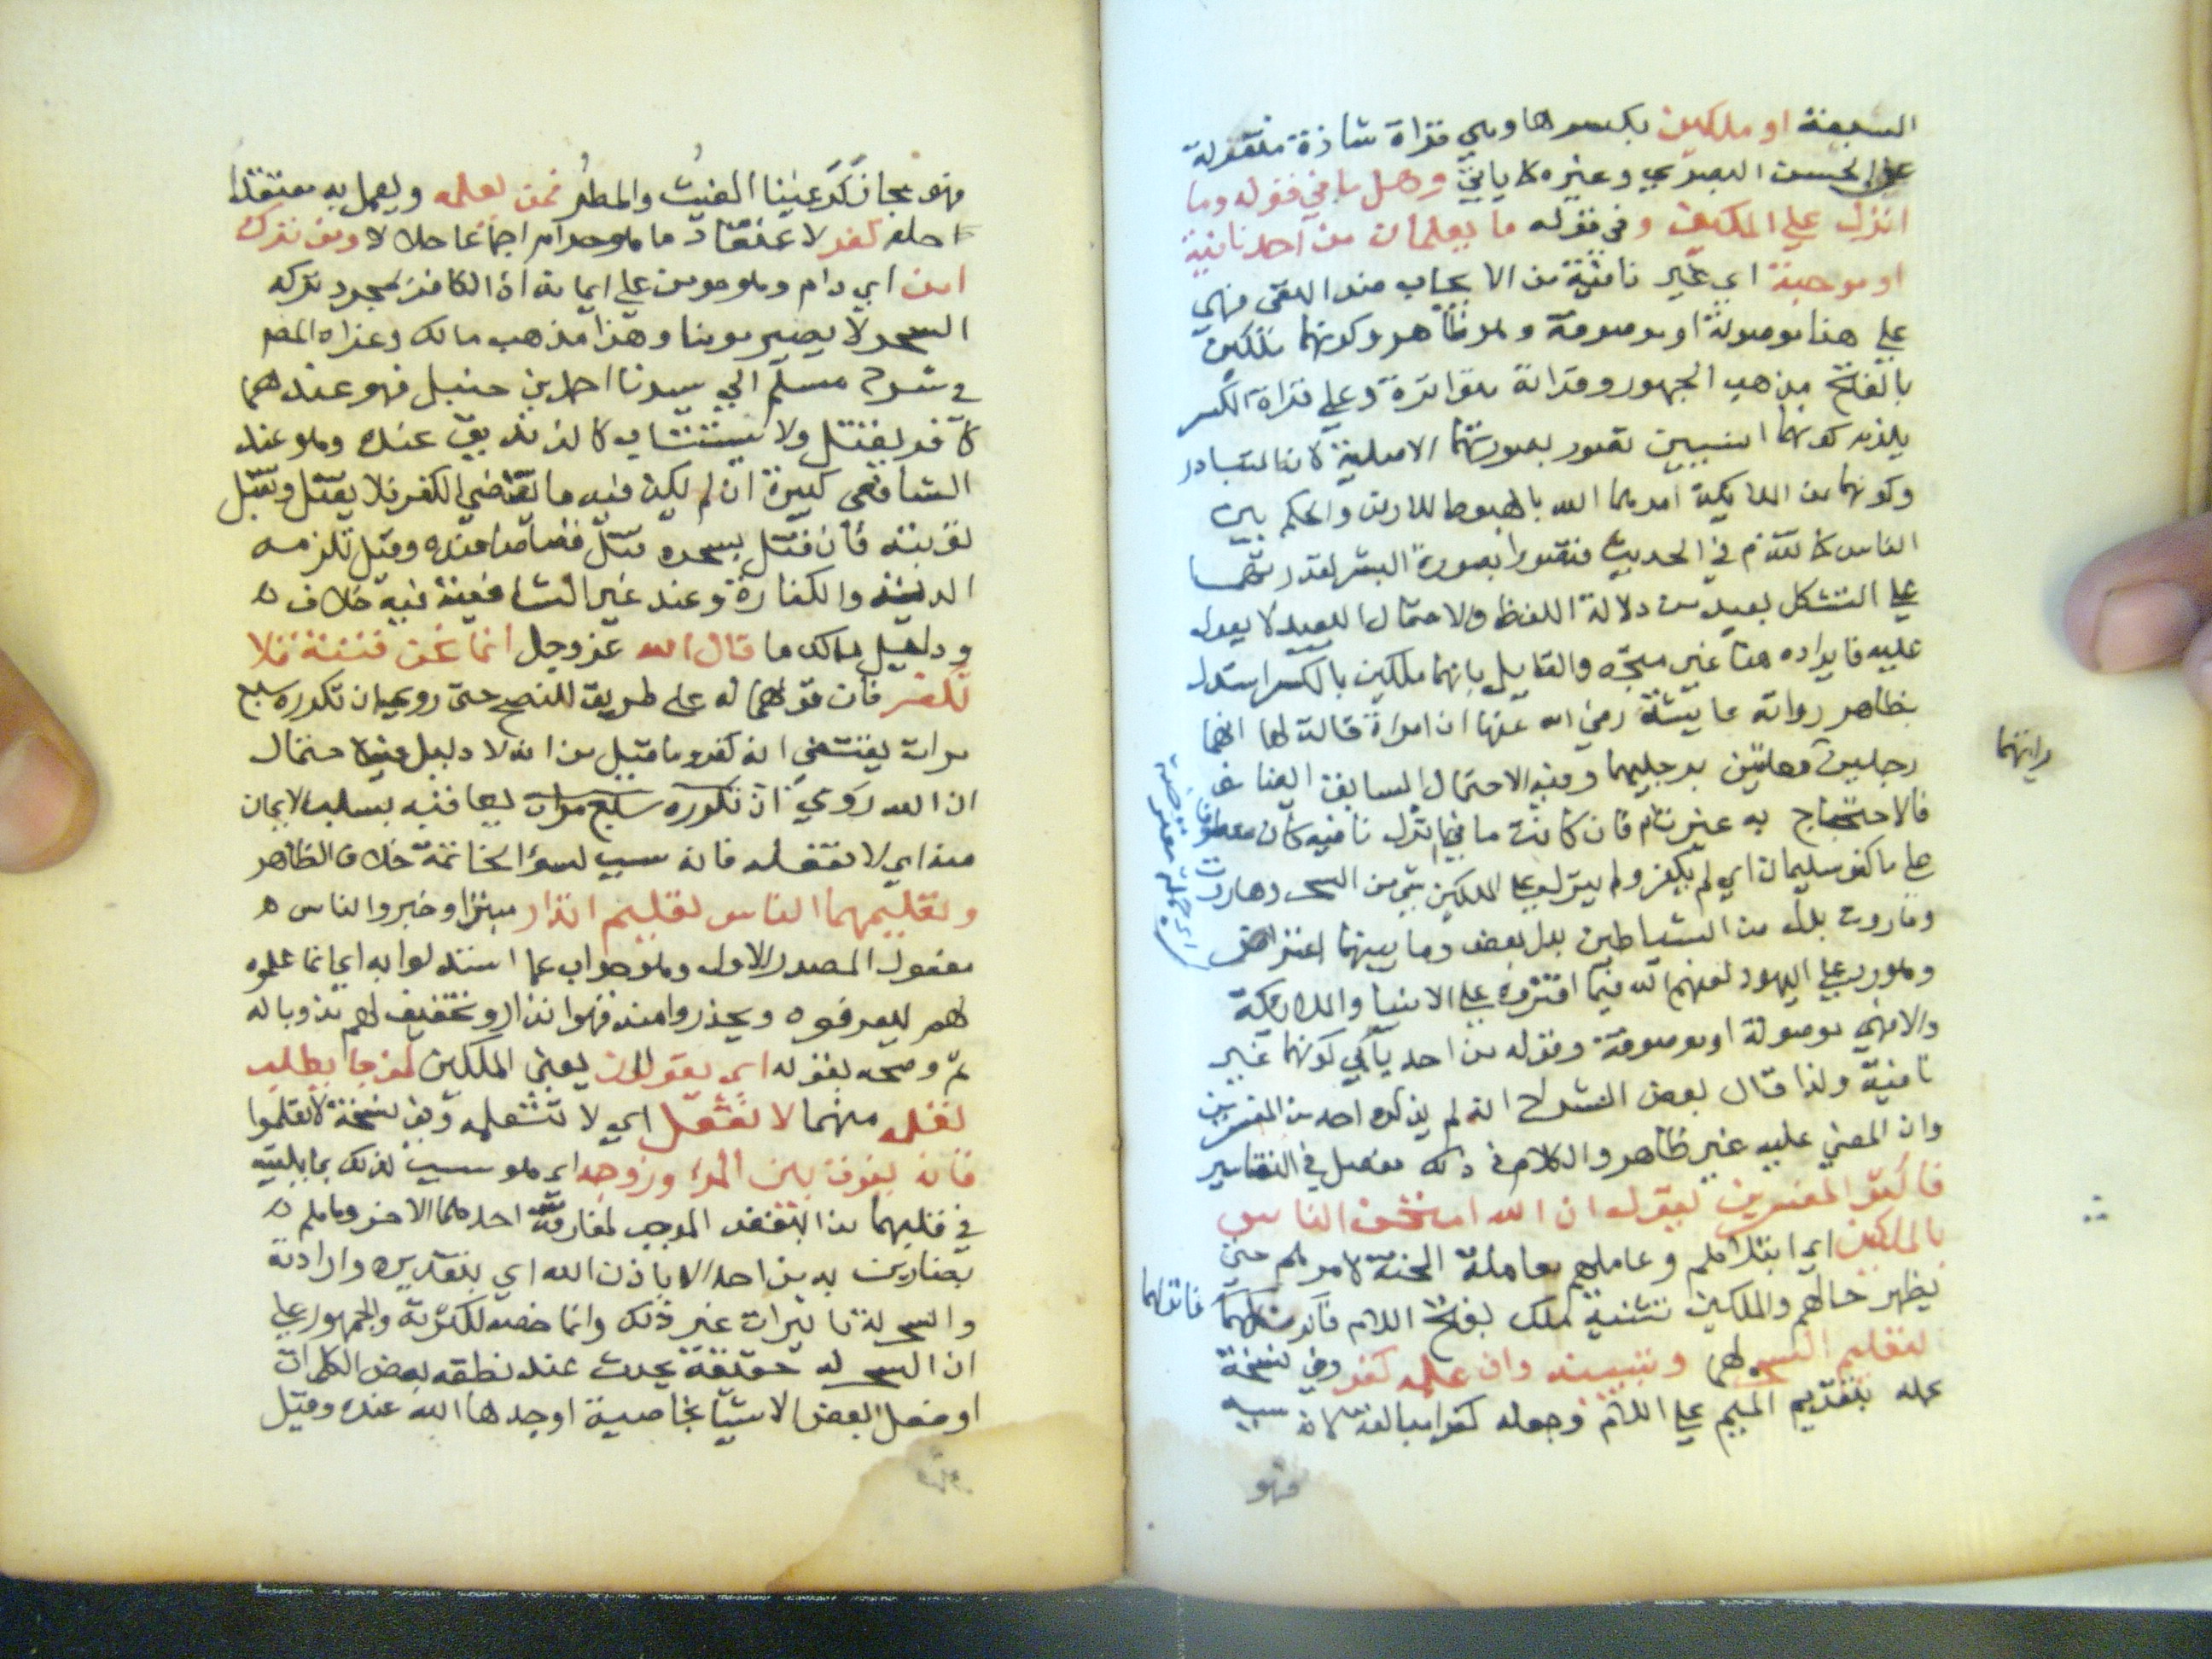 السبعة او ملكين بكسرها وهي قراة شاذة منقولة
عن الحسن البصري وغيره كما ياتي وهل ما في قوله وما
انزل على الملكين وفي قوله ما يعلمان من احد نافية
او موجبة اي غير نافية من الايجاب ضد النفى فهي
على هنا موصولة او موصوفة وهو ظاهر وكونهما ملكين
بالفتح مذهب الجمهور وقراته متواترة وعلى قراة الكسر
يلزم كونهما انسيين تصور بصورتهما الاصلية لانه المتبادر
وكونهما من الملايكة امرهما الله بالهبوط للارض والحكم بين
الناس كما تقدم في الحديث فتصورا بصورة البشر لقدرتهما
على التشكل بعيد من دلالة اللفظ والاحتمال البعيد لا يعول
عليه فايراده هنا غير متجه والقايل بانهما ملكين بالكسر استدل
بظاهر رواية عايشة رضي الله عنها ان امراة قالت لها انهما
رجلين معلقين برجليهما وفيه الاحتمال السابق ايضا
رايتهما
فالاحتجاج به غير تام فان كانت ما في ما انزل نافيه كان معطوفا
على ما كفر سليمان اي لم يكفر ولم ينزل على الملكين شي من السحر وهاروت
وماروت بدل من الشياطين بدل بعض وما بينهما اعتراض
اي جملة معترضة
وهو رد على اليهود لعنهم الله فيما افتروه على الانبيا والملائكة
والا فهي موصولة او موصوفة وقوله من احد ياتي كونها غير
نافية ولذا قال بعض الشراح انه لم يذكره احد من المفسرين
وان المعني عليه غير ظاهر والكلام في ذلك مفصل في التفاسير
فاكثر المفسرين يقول ان الله امتحن الناس
بالملكين اي ابتلاهم وعاملهم معاملة المحنة لامرهم حتى
يظهر حالهم والملكين تثنية ملك بفتح اللام
فانزلهما
لتعليم السحر لهما وتبيينه وان علمه كفر وفي نسخة
عمله بتقديم الميم على اللام وجعله كفرا مبالغة لانه سببه
فهو
فهو مجاز كرعينا الغيث والمطر فمن تعلمه ويعمل به معتقدا
حله كفر لاعتقاد ما هو حرام اجماعا حلالا ومن تركه
امن اي دام وهو مومن على ايمانه اذ الكافر بمجرد تركه
السحر لا يصير مومنا وهذا مذهب مالك وعزاه المص
في شرح مسلم الي سيدنا احمد بن حنبل فهو عندهما
كافر يقتل ولا يستتاب كالزنديق عنده وهو عند
الشافعى كبيرة ان لم يكن فيه ما يقتضي الكفر فلا يقتل وتقبل
توبته فان قتل بسحره قتل قصاصا عنده وقيل تلزمه
الدية والكفارة وعند غير الشافعية فيه خلاف
ودليل ذلك ما قال الله عز وجل انما نحن فتنة فلا
تكفر فان قولهما له على طريق النصح حتى روي ان تكرره سبع
مرات يقتضي انه كفر وما قيل من انه لا دليل فيه لاحتمال
ان الله روي ان تكرره سبع مرات يعاقبه بسلب الايمان
منه اي لا تفعله فانه سبب لسوء الخاتمة خلاف الظاهر
وتعليمهما الناس تعليم انذار مبتدا وخبر والناس
مفعول المصدر الاول وهو جواب عما استدلوا به اي انما علموه
لهم ليعرفوه ويحذروا منه فهو انذار وتخفيف لهم
ثم وضحه بقوله اي يقولان يعنى الملكين لمن جا يطلب
تعلمه منهما لا تفعل اي لا تتعلمه وفي نسخة لا تعلموا
فانه يفرق بين المرء وزوجه اي هو سبب لذلك بما يلقيه
في قلبهما من البغض الموجب لمفارقة احدهما الاخر وما هم
بضارين به من احد الا باذن الله اي بتقديره وارادته
والسحر له تاثيرات غير ذلك وانما خصه لكثرته والجمهور على
ان السحر له حقيقة يحدث عند نطقه ببعض الكلمات
او فعل بعض الاشيا بخاصية اوجدها الله عنده وقيل